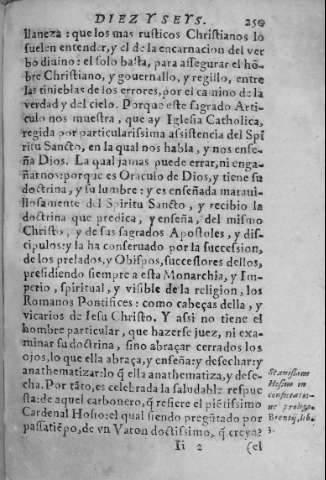 DIEZ Y SEYS. 250
llaneza: que los mas rusticos Christianos lo
suelen entender, y el de la encarnacion del ver
bo diuino: el solo basta, para assegurar el hõ-
bre Christiano, y gouernallo, y regillo, entre
las tinieblas de los errores, por el camino de la
verdad y del cielo. Porque este sagrado Arti-
culo nos muestra, que ay Iglesia Catholica,
regida por particularissima assistencia del Spi
ritu Sancto, en la qual nos habla, y nos ense-
ña Dios. La qual jamas puede errar, ni enga-
ñarnos: porque es Oraculo de Dios, y tiene su
doctrina, y su lumbre: y es enseñada maraui-
llosamente del Spiritu Sancto, y recibio la
doctrina que predica, y enseña, del mismo
Christo, y de sus sagrados Apostoles, y dis-
cipulos: y la ha conseruado por la succession,
de los prelados, y Obispos, successores dellos,
presidiendo siempre a esta Monarchia, y Im-
perio, spiritual, y visible de la religion, los
Romanos Pontifices: como cabeças della, y
vicarios de Iesu Christo. Y assi no tiene el
hombre particular, que hazerse juez, ni exa-
minar su doctrina, sino abraçar cerrados los
ojos, lo que ella abraça, y enseña: y desechar: y
anathematizar: lo q̃ ella anathematiza, y dese-
cha. Por tãto, es celebrada la saludable respue
sta: de aquel carbonero, q̃ refiere el piētissimo
Cardenal Hosio: el qual siendo pregũtado por
passatiēpo, de vn Varon doctissimo, q̃ creya?
Ii 2 (el
Stanislaus
Hosius in
confutatio-
ne prolego.
Brentij, lib.
3.